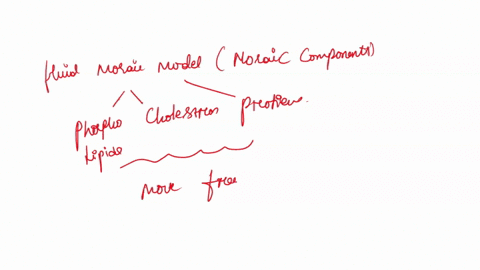 fluid Mosaic Model ( Mosaic Components)
Phospho Cholestren Proteins.
Lipids
Move free